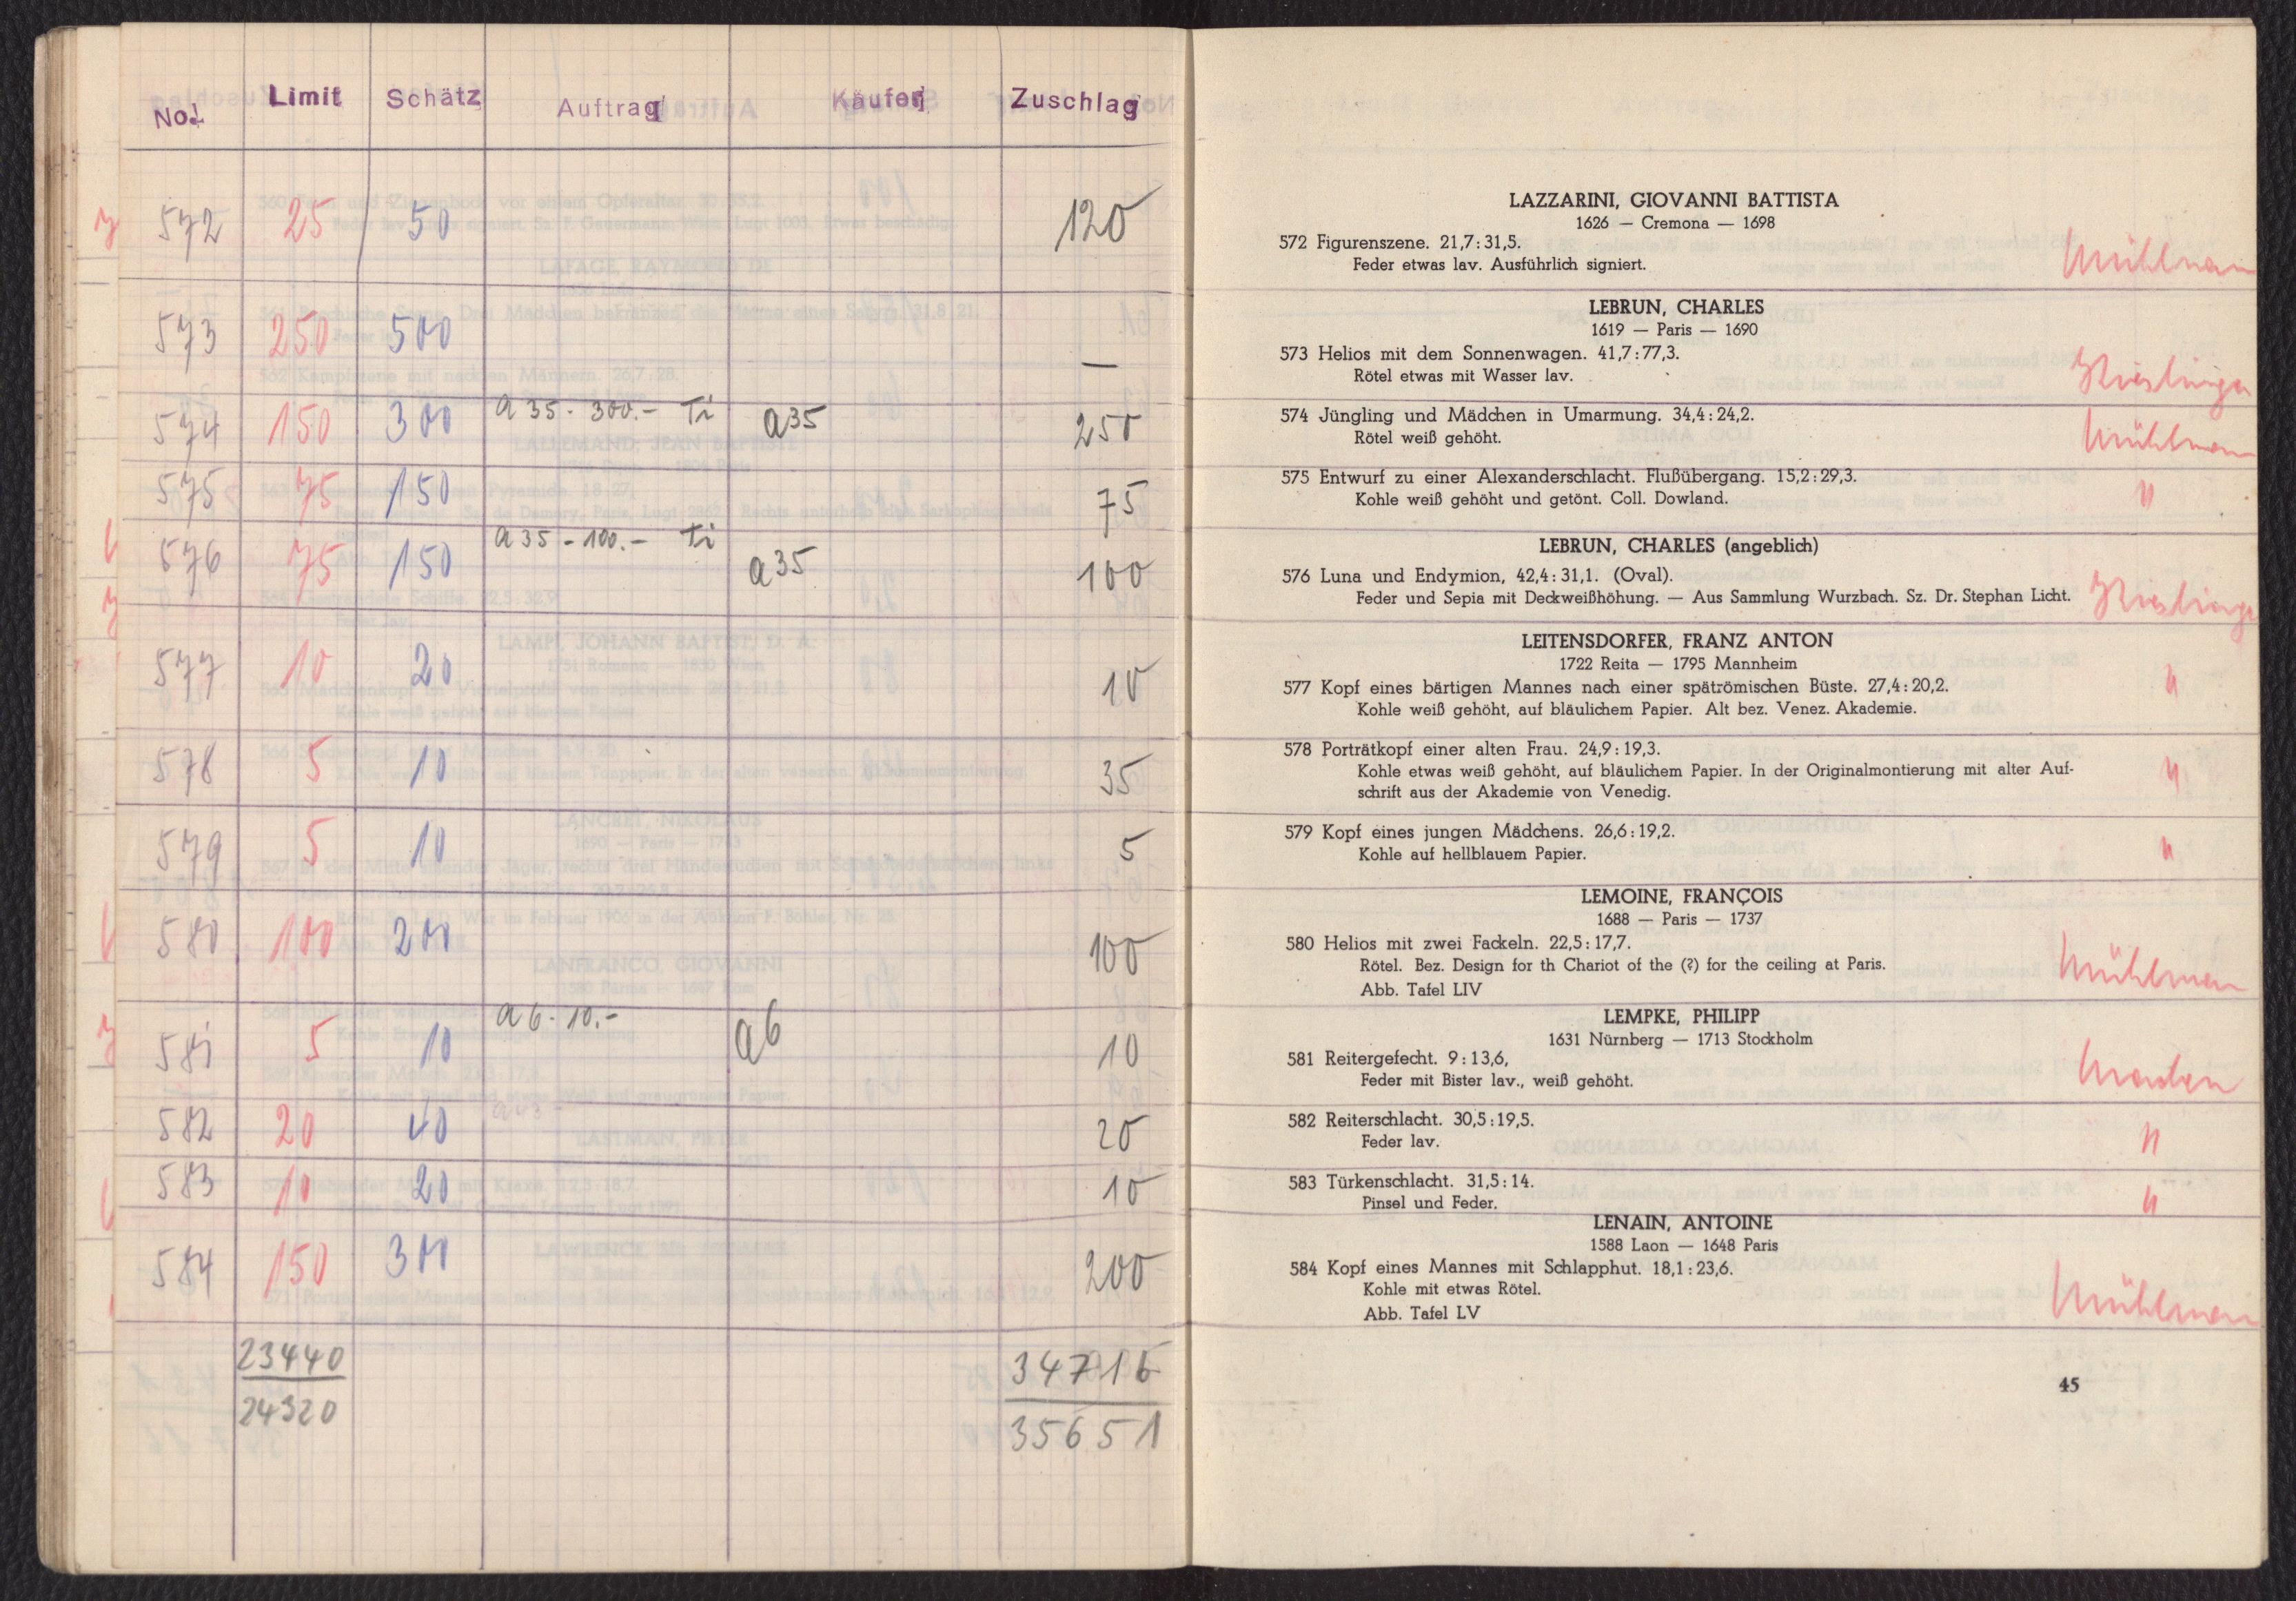 No.
Limit
Schätz
Auftrag
Käufer
Zuschlag
572 25 50 120
573 250 500 —
574 150 300 a 35 - 300.- Ti a35 250
575 75 150 75
576 75 150 a 35 - 100.- Ti a35 100
577 10 20 10
578 5 10 35
579 5 10 5
580 100 200 100
581 5 10 a 6 - 10.- a6 10
582 20 40 20
583 10 20 10
584 150 300 200
23440 34716
24320 35651
LAZZARINI, GIOVANNI BATTISTA
1626 — Cremona — 1698
572 Figurenszene. 21,7:31,5.
Feder etwas lav. Ausführlich signiert.
LEBRUN, CHARLES
1619 — Paris — 1690
573 Helios mit dem Sonnenwagen. 41,7:77,3.
Rötel etwas mit Wasser lav.
574 Jüngling und Mädchen in Umarmung. 34,4:24,2.
Rötel weiß gehöht.
575 Entwurf zu einer Alexanderschlacht. Flußübergang. 15,2:29,3.
Kohle weiß gehöht und getönt. Coll. Dowland.
"
LEBRUN, CHARLES (angeblich)
576 Luna und Endymion, 42,4:31,1. (Oval).
Feder und Sepia mit Deckweißhöhung. — Aus Sammlung Wurzbach. Sz. Dr. Stephan Licht.
LEITENSDORFER, FRANZ ANTON
1722 Reita — 1795 Mannheim
577 Kopf eines bärtigen Mannes nach einer spätrömischen Büste. 27,4:20,2.
"
Kohle weiß gehöht, auf bläulichem Papier. Alt bez. Venez. Akademie.
578 Porträtkopf einer alten Frau. 24,9:19,3.
Kohle etwas weiß gehöht, auf bläulichem Papier. In der Originalmontierung mit alter Auf-
"
schrift aus der Akademie von Venedig.
579 Kopf eines jungen Mädchens. 26,6:19,2.
Kohle auf hellblauem Papier.
"
LEMOINE, FRANÇOIS
1688 — Paris — 1737
580 Helios mit zwei Fackeln. 22,5:17,7.
Rötel. Bez. Design for th Chariot of the (?) for the ceiling at Paris.
Abb. Tafel LIV
LEMPKE, PHILIPP
1631 Nürnberg — 1713 Stockholm
581 Reitergefecht. 9:13,6,
Feder mit Bister lav., weiß gehöht.
582 Reiterschlacht. 30,5:19,5.
Feder lav.
"
583 Türkenschlacht. 31,5:14.
Pinsel und Feder.
"
LENAIN, ANTOINE
1588 Laon — 1648 Paris
584 Kopf eines Mannes mit Schlapphut. 18,1:23,6.
Kohle mit etwas Rötel.
Abb. Tafel LV
45